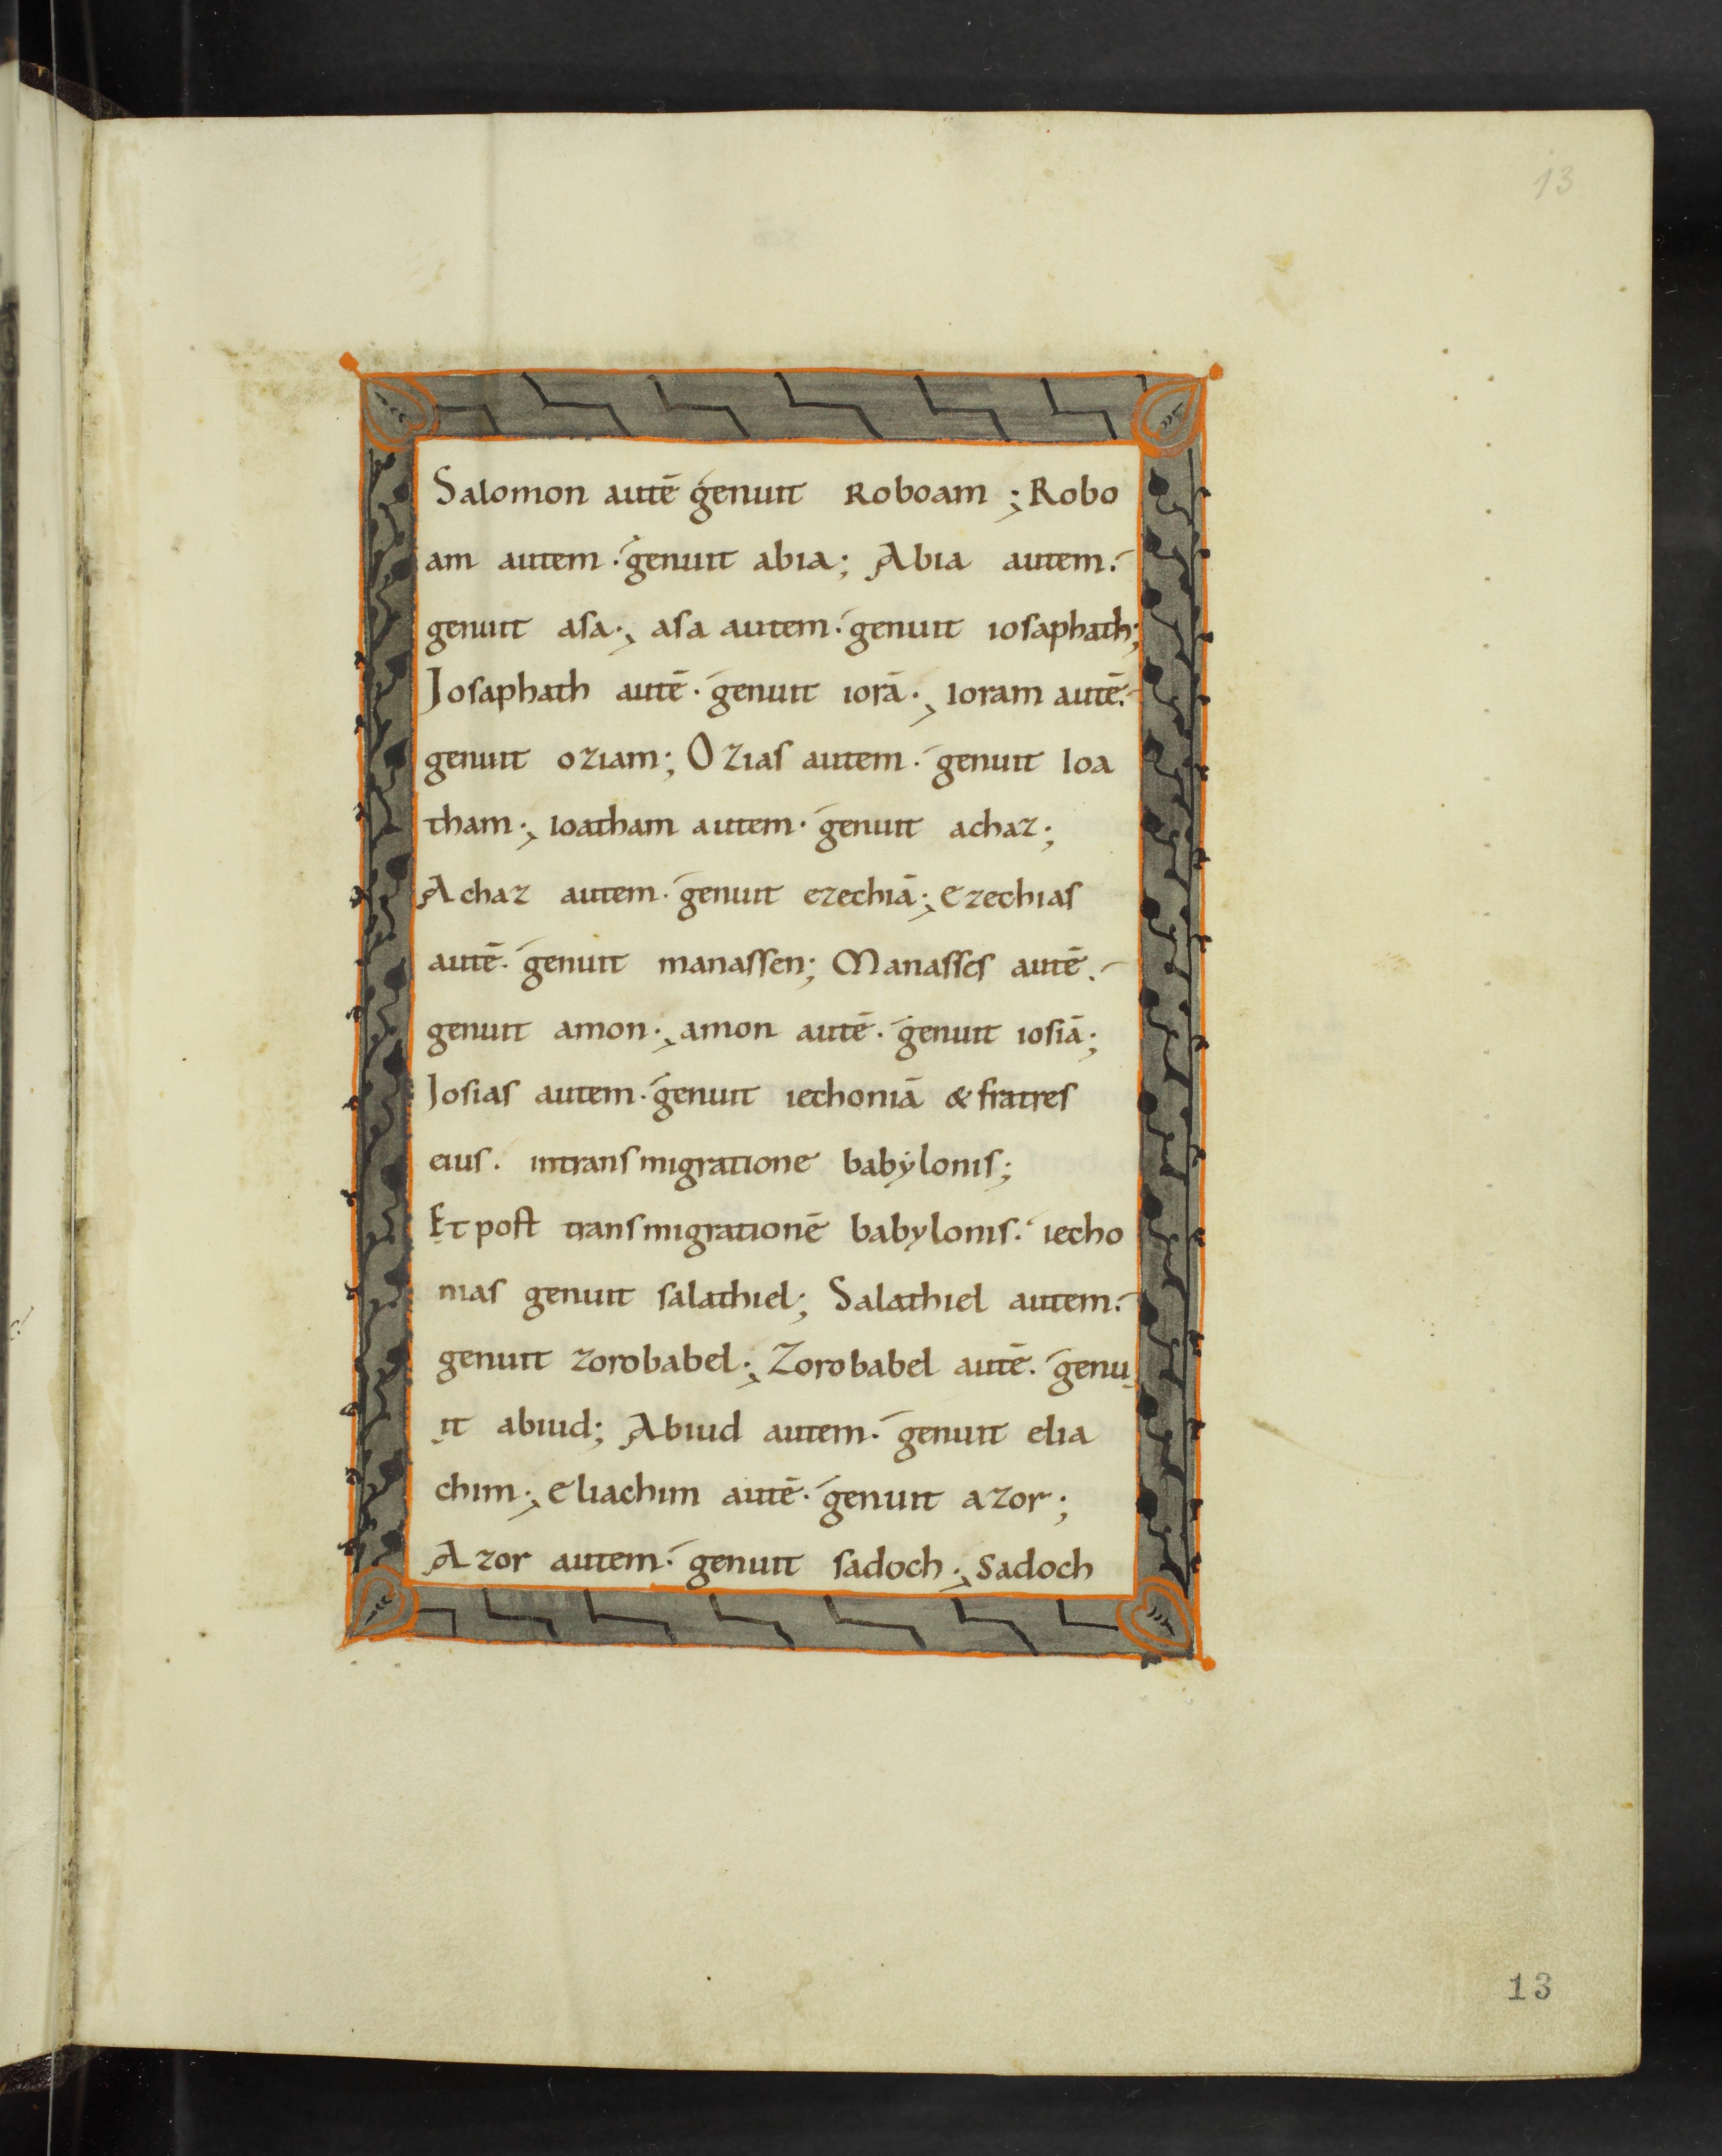 13
Salomon autē genuit Roboam ; Robo
am autem · genuit abia ; Abia autem ·
genuit asa · , asa autem · genuit iosaphath ;
Josaphath autē · genuit iorā · , Ioram autē ·
genuit oziam ; Ozias autem · genuit Ioa
tham · , ioatham autem · genuit achaz ;
Achaz autem · genuit ezechiā ; ezechias
autē · genuit manassen ; Manasses autē ·
genuit amon · , amon autē · genuit iosiā ;
Josias autem · genuit iechoniā & fratres
eius · intransmigratione babylonis ;
Et post transmigrationē babylonis · iecho
nias genuit salathiel ; Salathiel autem ·
genuit zorobabel ; Zorobabel autē · genu
it abiud ; Abiud autem · genuit elia
chim · , eliachim autē · genuit azor ;
Azor autem · genuit sadoch · , Sadoch
13